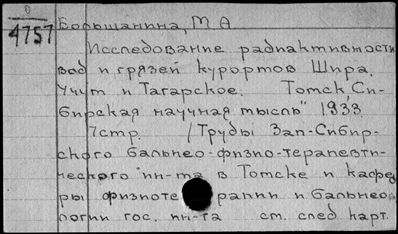 0
4757
Большанина, М А
Исследование радиактивности
вод и грязей курортов Шира,
Учум и Тагарское. Томск, „Си-
бирская научная мысль" 1933
7стр. /Труды Зап-Сибир-
ского бальнео-физио-терапевти-
ческого ин-та в Томске и кафед
ры физиоте рапии и бальнео
логии гос. ин-та ст. след карт.